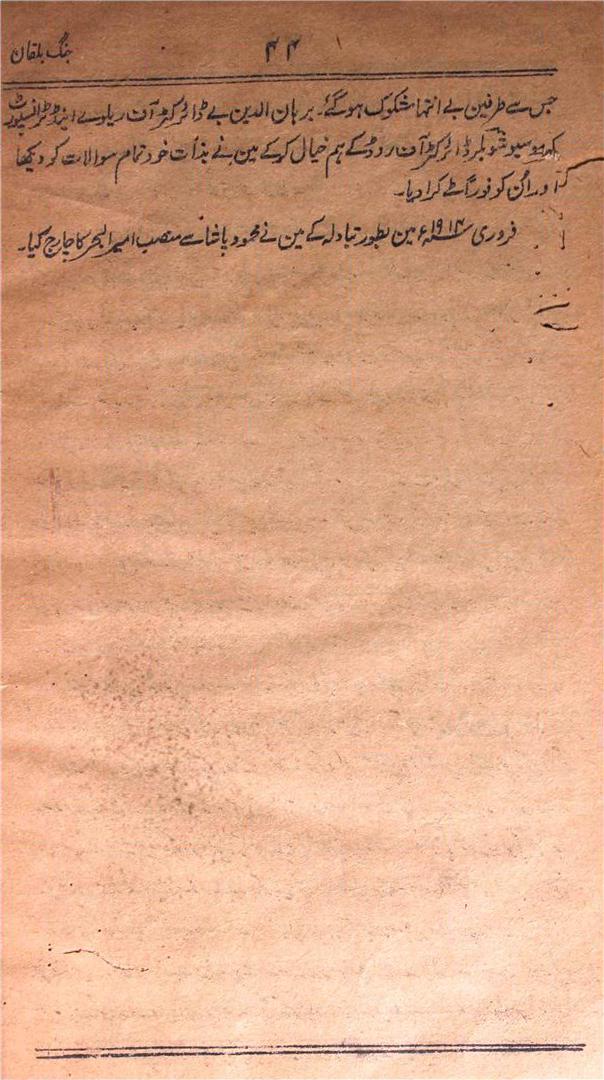 جنگ بلقان
۴۴
جس سے طرفین بے انتہا مشکوک ہوگئے۔ برہان الدین بے ڈائرکٹر آف ریلوے اینڈ ٹرانسپورٹ
موسیو ڈائرکٹر آف روڈ کے ہم خیال کرکے مین نے بذات خود تمام سوالات کو دیکھا
اور اُن کو فوراً طے کرادیا۔
فروری سنہ ۱۹۱۴ء مین بطور تبادلہ کے مین نے محمود پاشا سے منصب امیر البحر کا چارج لیا۔